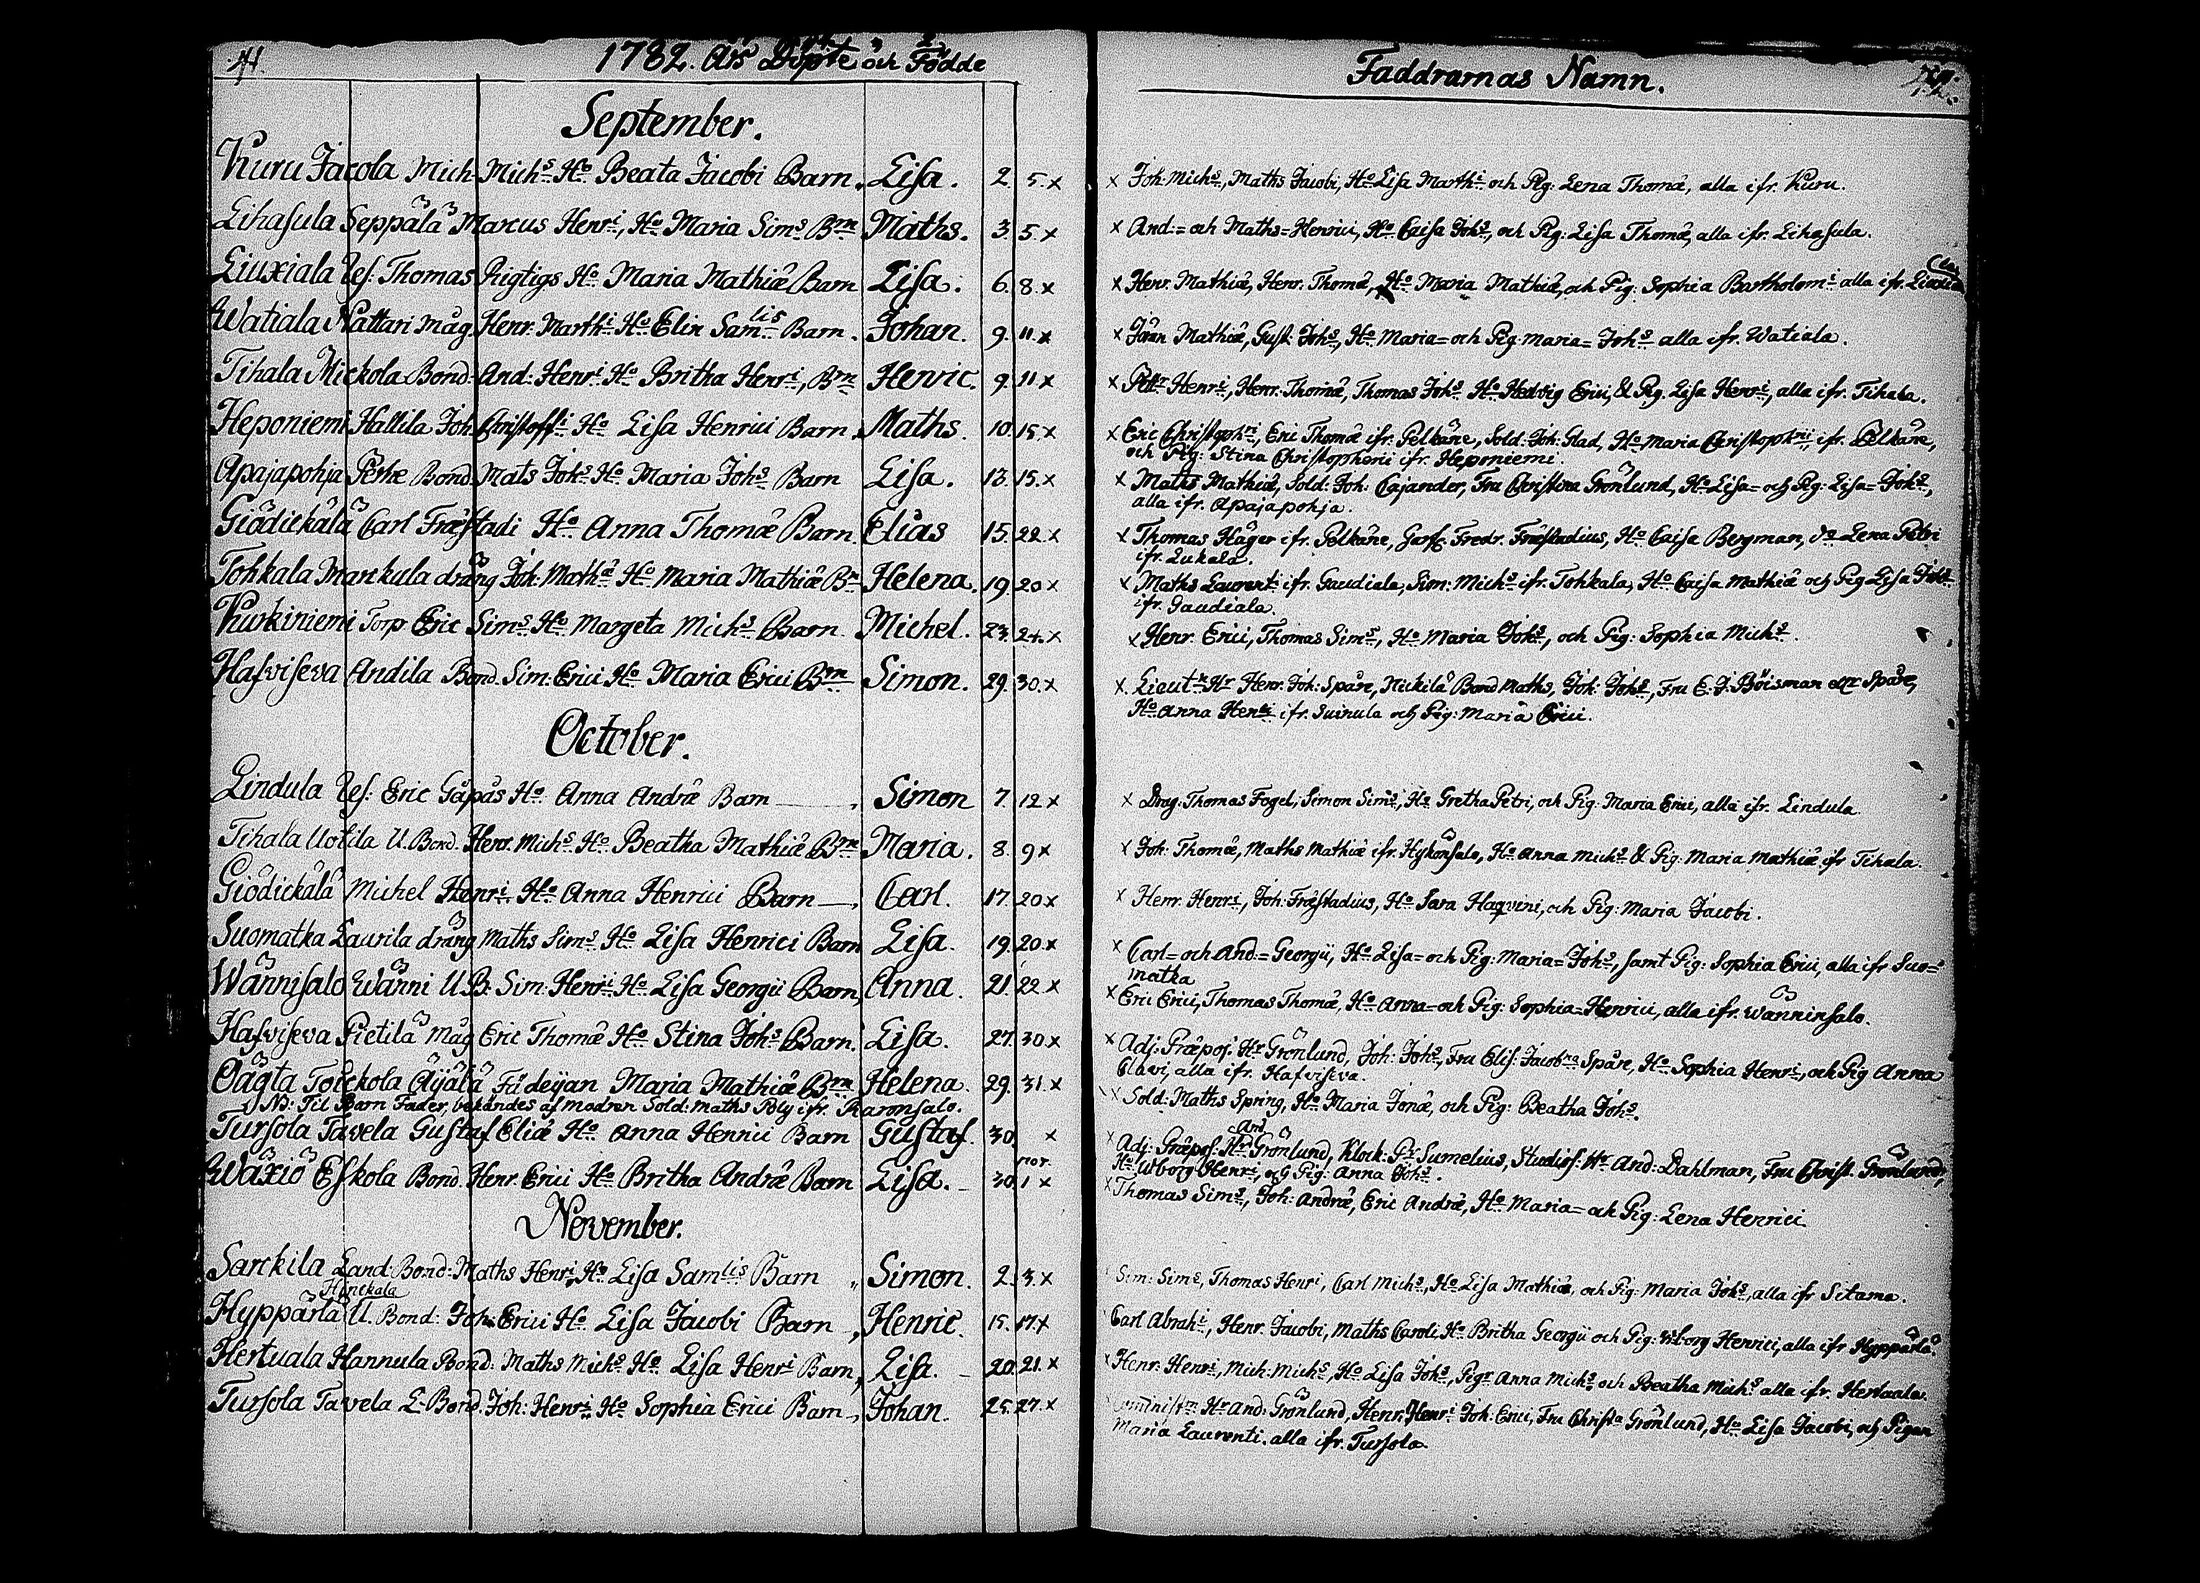 1782. Års Döpte och Födde
September.
Kuru Jacola Mich. Michs. Ho. Beata Jacobi Barn. Lisa. 2. 5. x
Lihasula Seppälä Marcus Henri, Ho. Maria Sims. Brn Maths. 3. 5. x
Liuxiala Ref. Thomas Rigtigs Ho. Maria Mathiæ Barn Lisa. 6. 8. x
Watiala Nattari måg. Henr. Marthi. Ho. Elin Samlis Barn. Johan. 9. 11. x
Tihala Mickola Bond. And: Henri. Ho. Britha Henri, Brn Henric. 9. 11 x
Heponiemi Hallila Joh. Christoffi. Ho. Lisa Henrici Barn. Maths. 10. 15. x
Apajapohja Perke Bond. Mats Johs. Ho. Maria Johs. Barn Lisa. 13. 15. x
Giödickälä Carl Fræstadi Ho. Anna Thomæ Barn. Elias 15. 22. x
Tohkala Marckula dräng Joh. Mathæ Ho. Maria Mathiæ Brn Helena. 19. 20 x
Kurkiniemi Torp. Eric Sims. Ho. Margeta Michs. Barn Michel. 23. 24. x
Hafviseva Andila Bond. Sim: Erici Ho. Maria Erici Brn Simon. 29. 30. x
October.
Lindula Ref: Eric Gåpås Ho. Anna Andræ Barn. Simon 7. 12 x
Tihala Uotila U. Bond. Henr. Michs. Ho. Beatha Mathiæ Brn Maria. 8. 9 x
Giödickälä Michel Henri. Ho. Anna Henrici Barn. Carl. 17. 20 x
Suomatka Laurila dräng Maths Sims. Ho. Lisa Henrici Barn Lisa. 19. 20. x
Wännisalo Wänni U.B. Sim: Henri. Ho. Lisa Georgii Barn, Anna. 21. 22. x
Hafviseva Pietilä måg Eric Thomæ Ho. Stina Johs. Barn. Lisa. 27. 30 x
Oägta Toickola Äyälä Maria Mathiæ Brn Helena. 29. 31. x
NB: Til Barn Fader, bekändes af modren Sold: Maths Poly ifr. Karonsalo.
Tursola Tavela Gustaf Eliæ Ho. Anna Henrici Barn Gustaf. 30. x
Wäxiö Eskola Bond. Henr. Erici Ho. Britha Andræ Barn Lisa. 30. nov. 1 x
November.
Sarckila Land. Bond: Maths Henri, Ho. Lisa Samlis Barn Simon. 2. 3. x
Hyppärlä U. Bond: Joh. Erici Ho. Lisa Jacobi Barn, Henric. 15. 17. x
Hertuala Hannula Bond: Maths Michs. Ho. Lisa Henri Barn, Lisa. 20. 21. x
Tursola Tavela L. Bond. Joh: Henri. Ho. Sophia Erici Barn, Johan. 25. 27. x
Faddrarnas Namn.
x Joh: Michs., Maths Jacobi, Ho. Lisa Marthi. och Pig: Lena Thomæ, alla ifr. Kuru.
x And:= och Maths= Henrici, Ho. Caisa Johs., och Pig: Lisa Thomæ, alla ifr. Lihasula.
x Henr. Mathiæ, Henr. Thomæ, Ho. Maria Mathiæ, och Pig: Sophia Bartholomi. alla ifr. Liuxiala
x Jöran Mathiæ, Gust: Johs., Ho. Maria= och Pig. Maria= Johs. alla ifr. Watiala.
x Petr Henri., Henr. Thomæ, Thomas Johs. Ho. Hedvig Erici, & Pig. Lisa Henri., alla ifr. Tihala.
x Eric Christophri, Eric Thomæ ifr. Pelkäne, Sold: Joh: Glad, Ho. Maria Christophrii, ifr. Pelkäne,
och Pig: Stina Christopherii ifr. Heponiemi.
x Maths Mathiæ, Sold: Joh: Cajander, Fru Christina Grönlund, Ho. Lisa= och Pig: Lisa= Johs.,
alla ifr. Apajapohja.
x Thomas Häger ifr. Pelkäne, Fredr. Fræstadius, Ho. Caisa Bergman, do Lena Petri
ifr. Lukala.
x Maths Laurent: ifr. Gaudiala, Sim: Michs. ifr. Tohkala, Ho. Caisa Mathiæ och Pig Lisa Johs.
ifr. Gaudiala.
x Henr. Erici, Thomas Sims., Ho. Maria Johs., och Pig: Sophia Michs.
x Lieut. Hr Henr. Joh: Spåre, Mickilä Bond Maths, Joh: Johs., Fru E. J. Böisman Spåre,
Ho. Anna Henri. ifr. Suinula och Pig: Maria Erici.
x Drag: Thomas Fogel, Simon Sims., Ho. Gretha Petri, och Pig: Maria Erici, alla ifr. Lindula.
x Joh: Thomæ, Maths Mathiæ ifr. Hykönsalo, Ho. Anna Michs. & Pig: Maria Mathiæ ifr Tihala.
x Henr. Henri., Joh: Fræstadius, Ho. Sara Haqvini, och Pig: Maria Jacobi.
x Carl= och And:= Georgii, Ho. Lisa= och Pig: Maria= Johs., samt Pig: Sophia Erici, alla ifr Suo=
matka
x Eric Erici, Thomas Thomæ, Ho. Anna= och Pig: Sophia= Henrici, alla ifr. Wänninsalo.
x Adj: Præpos: Hr Grönlund, Joh: Johs., Fru Elis: Jacobna Spåre, Ho. Sophia Henri., och Pig Anna
Clavi, alla ifr. Hafviseva.
x Sold: Maths Spring, Ho. Maria Jonæ, och Pig: Beatha Johs.
x Adj: Præpos: Hr And. Grönlund, Klock: Gr. Sumelius, Studios: Hr And: Dahlman, Fru Christ. Grönlund,
Ho. Wborg Henri., och Pig: Anna Johs.
x Thomas Sims., Joh: Andræ, Eric Andræ, Ho. Maria= och Pig: Lena Henrici
Sim: Sims., Thomas Henri, Carl Michs., Ho. Lisa Mathiæ, och Pig: Maria Johs., alla ifr Sitama.
Carl Abrahi., Henr. Jacobi, Maths Caroli, Ho. Britha Georgii och Pig: Wborg Henrici, alla ifr Hyppärlä.
x Henr: Henri., Mich: Michs., Ho. Lisa Johs., Pigr Anna Michs. och Beatha Michs. alla ifr. Hertuala.
Hr And: Grönlund, Henr. Henri. Joh: Erici, Fru Christa Grönlund, Ho. Lisa Jacobi, och Pigan
Maria Laurenti. alla ifr. Tursola.